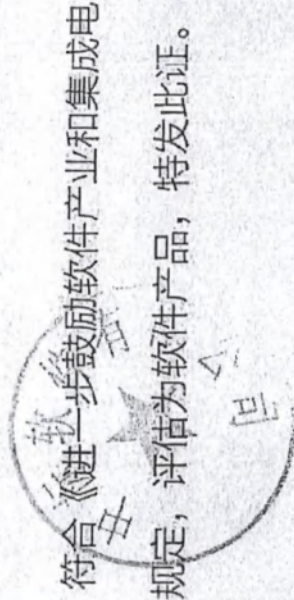 符合《进一步鼓励软件产业和集成电
规定，评估为软件产品，特发此证。
中
软
司